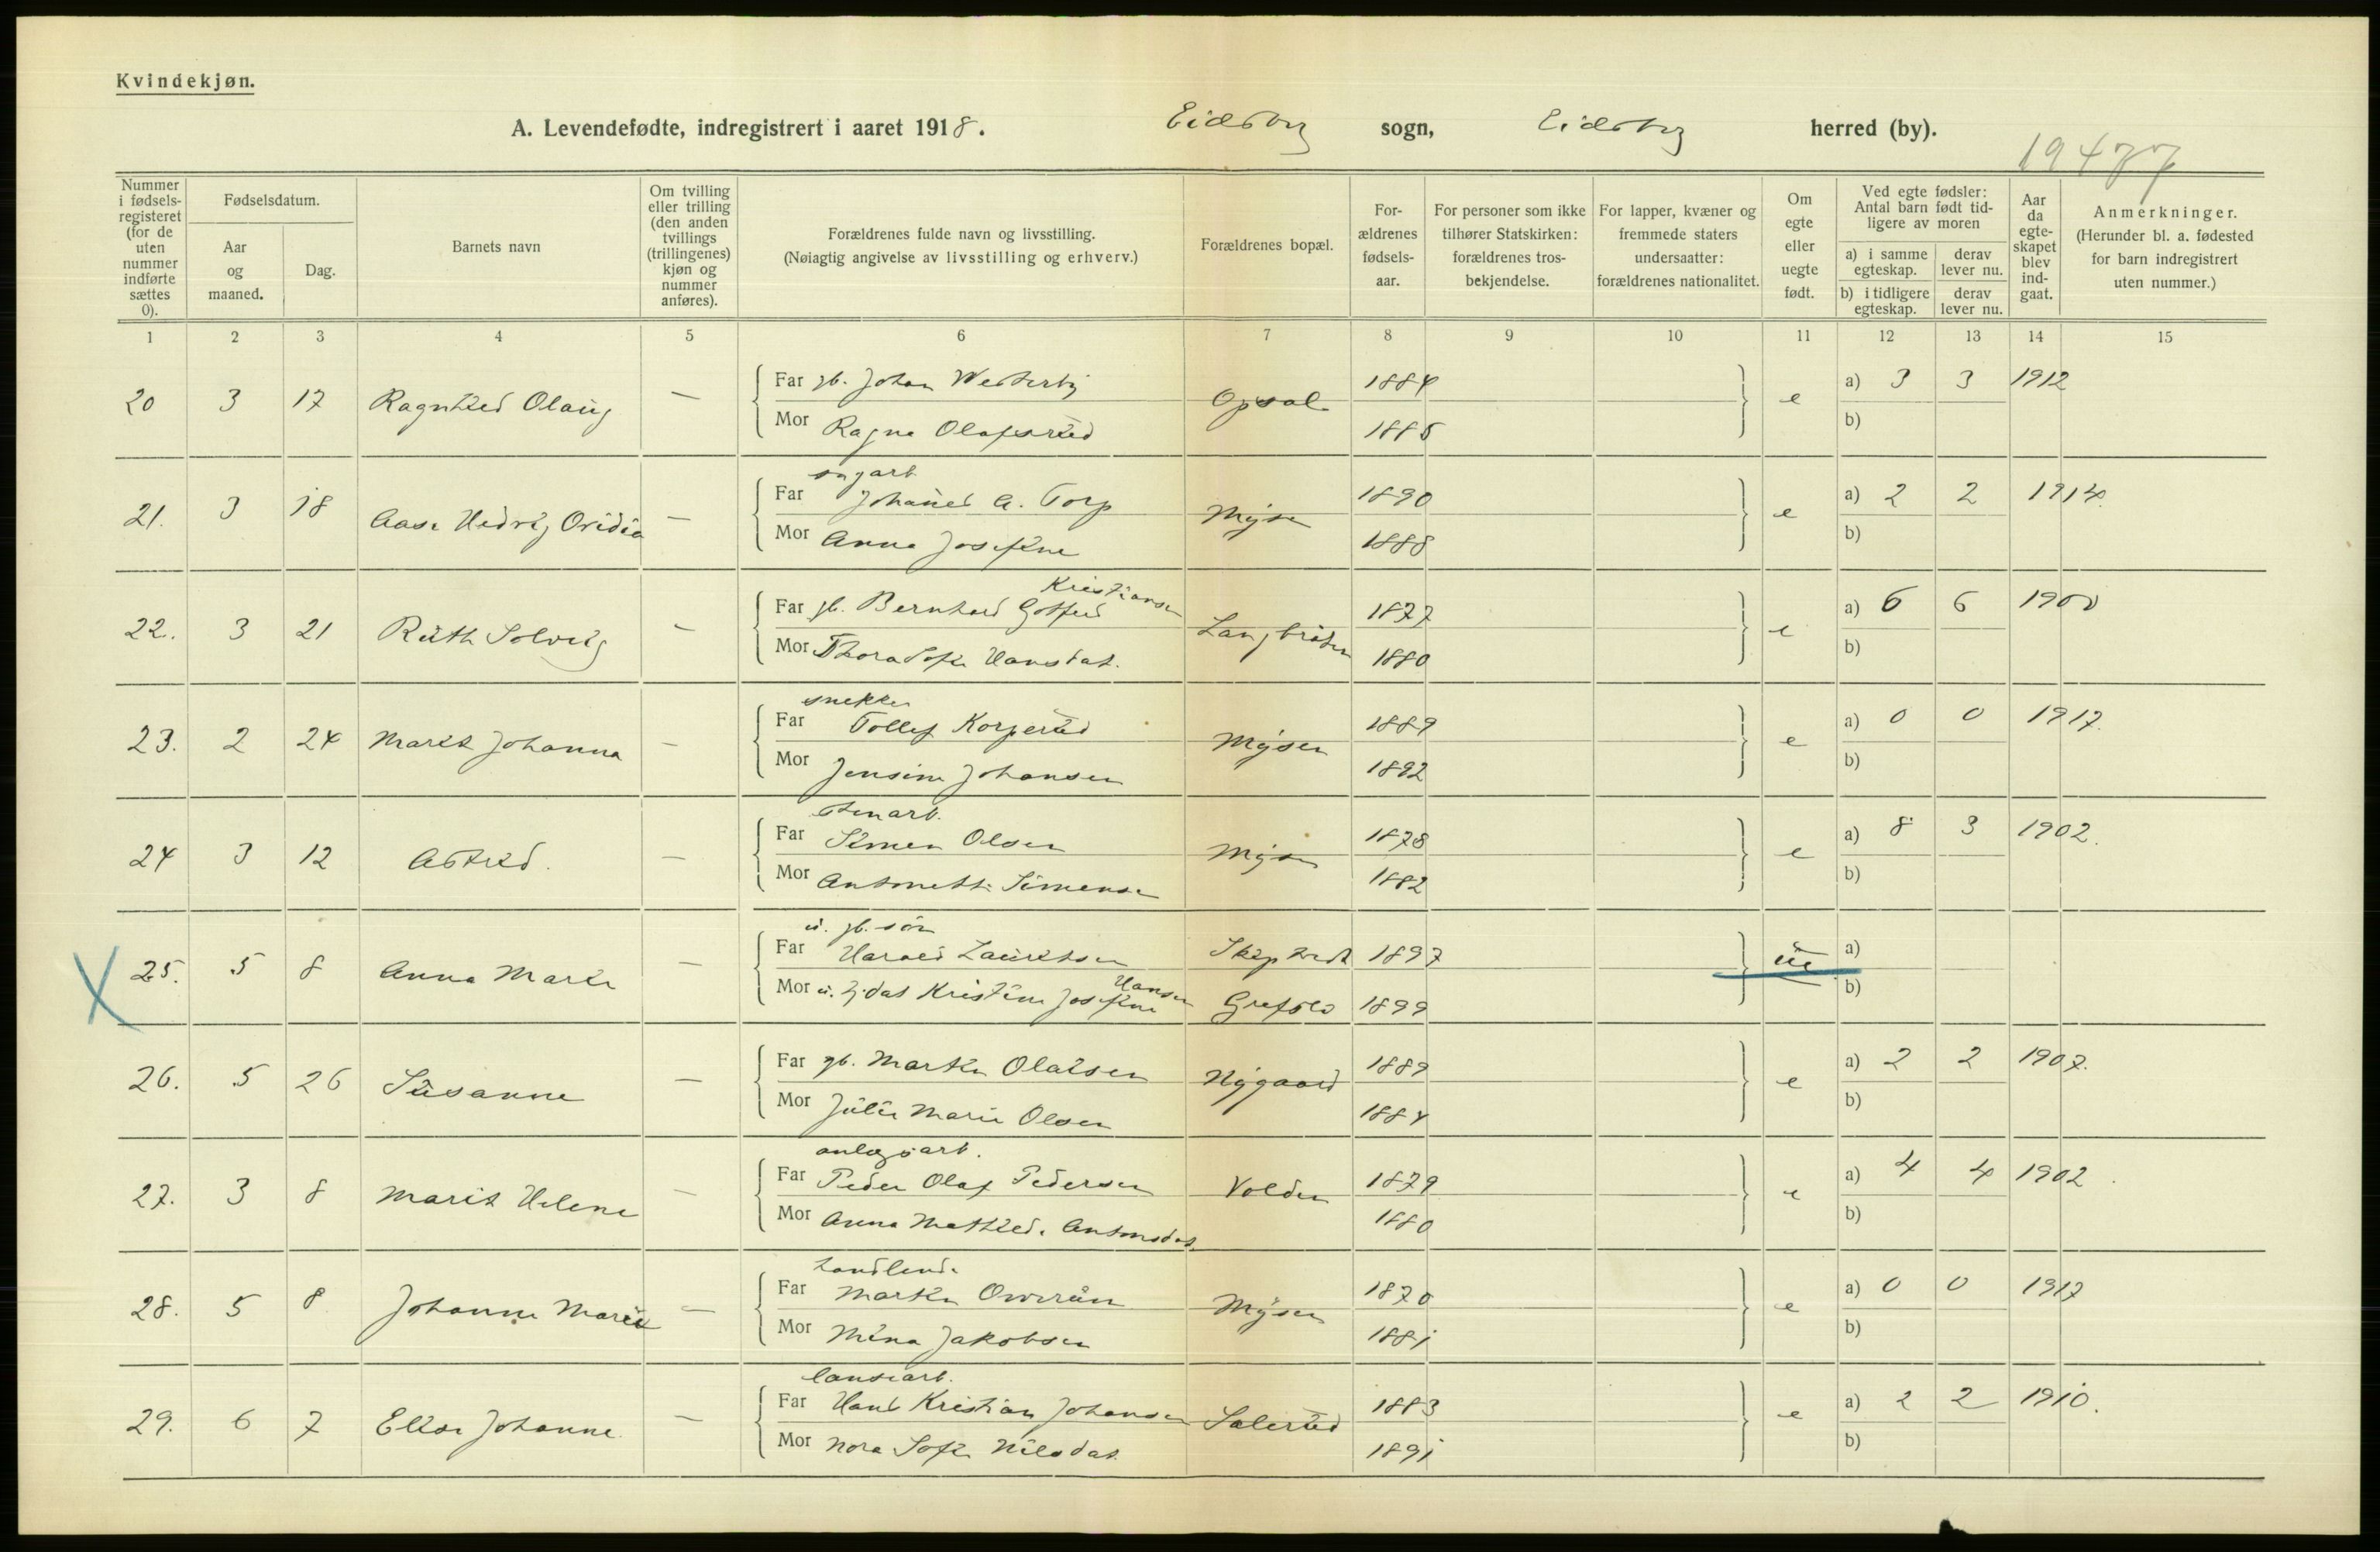 Kvindekjøn.
A. Levendefødte, indregistrert i aaret 1918. Eidsberg sogn, Eidsberg herred (by).
19477
Nummer i fødsels-registeret (for de uten nummer indførte sættes 0).
Fødselsdatum.
Aar og maaned.
Dag.
Barnets navn
Om tvilling eller trilling (den anden tvillings (trillingenes) kjøn og nummer anføres).
Forældrenes fulde navn og livsstilling.
(Nøiagtig angivelse av livsstilling og erhverv.)
Forældrenes bopæl.
For-ældrenes fødsels-aar.
For personer som ikke tilhører Statskirken: forældrenes tros-bekjendelse.
For lapper, kvæner og fremmede staters undersaatter: forældrenes nationalitet.
Om egte eller uegte født.
Ved egte fødsler: Antal barn født tid-ligere av moren
a) i samme egteskap.
derav lever nu.
b) i tidligere egteskap.
derav lever nu.
Aar da egte-skapet blev ind-gaat.
Anmerkninger.
(Herunder bl. a. fødested for barn indregistrert uten nummer.)
1 2 3 4 5 6 7 8 9 10 11 12 13 14 15
20 3 17 Ragnhild Olaug — Far gb. Johan Westerby Opsal 1884 e a) 3 3 1912
Mor Ragna Olafsrud 1885 b)
21. 3 18 Aase Hedvig Ovidia — Far Johanes A. Torp Mysen 1890 e a) 2 2 1914.
Mor Anna Josefine 1888 b)
Kristiansen
22. 3 21 Ruth Solveig — Far gb. Bernhard Gotfred 1877 e a) 6 6 1900
Mor Thora Sofie Hansdat. 1880 b)
snekker
23. 2 24 Marit Johanna — Far Tollef Korperud Mysen 1889 e a) 0 0 1917.
Mor Jensine Johansen 1892 b)
stenarb.
24 3 12 Astrid. — Far Simen Olsen Mysen 1878 e a) 8 3 1902.
Mor Antonette Simensen 1882 b)
u. gb. søn
25. 5 8 Anna Marie — Far Harald Lauritsen 1897 ue a)
Hansen
Mor u. dat Kristine Josefine Grefslo 1899 b)
26. 5 26 Susanne — Far gb. Martin Olaisen Nygaard 1889 e a) 2 2 1907.
Mor Julie Marie Olsen 1884 b)
anlegsarb.
27. 3 8 Marit Helene — Far Peder Olaf Pedersen Volden 1879 e a) 4 4 1902.
Mor Anna Mathilde Antonsdat. 1880 b)
handlende
28. 5 8 Johanne Marie — Far Martin Overåen Mysen 1870 e a) 0 0 1917
Mor Mina Jakobsen 1881 b)
29. 6 7 Ellse Johanne. — Far Hans Kristian Johansen Salerud 1883 e a) 2 2 1910.
Mor Nora Sofie Nilsdat. 1891 b)